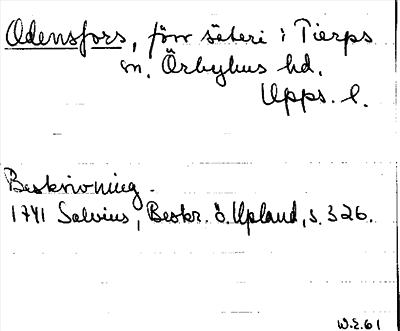 Odensfors, förr säteri i Tierps
sn. Örbyhus hd.
Upps. l.
Beskrivning.
1741 Salvius, Beskr. ö. Upland, s. 326.
W.E.61